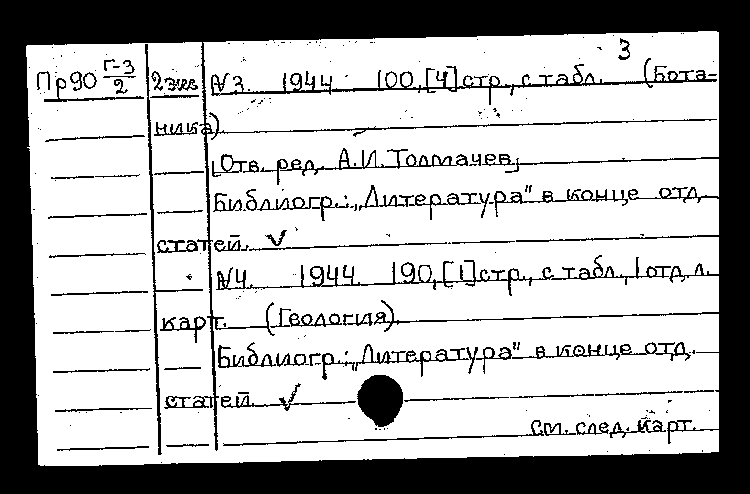 3
Пр90 Г-3/2 2 экз N3. 1944 100,[4] стр., с табл. (Бота-
ника).
[Отв. ред. А.И. Толмачев]
Библиогр.: „Литература" в конце отд.
статей. ✓
N4. 1944. 190,[1] стр., с табл., 1 отд. л.
карт. (Геология).
Библиогр.: „Литература" в конце отд.
статей. ✓
См. след. карт.